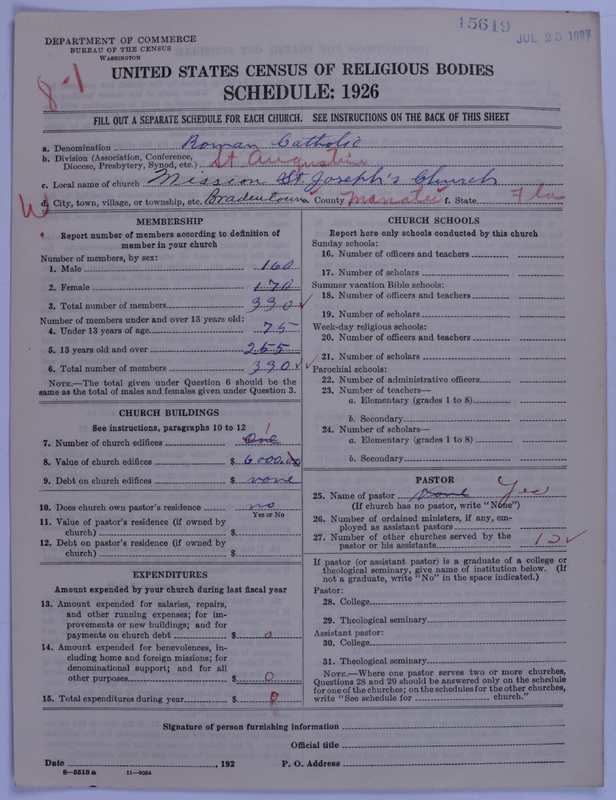 15619
JUL 25 1927
DEPARTMENT OF COMMERCE
BUREAU OF THE CENSUS
WASHINGTON
8-1
UNITED STATES CENSUS OF RELIGIOUS BODIES
SCHEDULE: 1926
FILL OUT A SEPARATE SCHEDULE FOR EACH CHURCH. SEE INSTRUCTIONS ON THE BACK OF THIS SHEET
a. Denomination Roman Catholic
b. Division (Association, Conference,
Diocese, Presbytery, Synod, etc.) St Augustine
c. Local name of church Mission St. Joseph's Church
d. City, town, village, or township, etc. Bradentown e. County Manatee f. State Fla
MEMBERSHIP
Report number of members according to definition of
member in your church
Number of members, by sex:
1. Male 160
2. Female 170
3. Total number of members 330 ✓
Number of members under and over 13 years old:
4. Under 13 years of age 75
5. 13 years old and over 255
6. Total number of members 330 ✓✓
NOTE.—The total given under Question 6 should be
same as the total of males and females given under Question 3.
CHURCH BUILDINGS
See instructions, paragraphs 10 to 12
7. Number of church edifices One 1
8. Value of church edifices $ 6000.00
9. Debt on church edifices $ none
10. Does church own pastor's residence no
Yes or No
11. Value of pastor's residence (if owned by
church) $
12. Debt on pastor's residence (if owned by
church) $
EXPENDITURES
Amount expended by your church during last fiscal year
13. Amount expended for salaries, repairs,
and other running expenses; for im-
provements or new buildings; and for
payments on church debt $ 0
14. Amount expended for benevolences, in-
cluding home and foreign missions; for
denominational support; and for all
other purposes $ 0
15. Total expenditures during year $ 0
CHURCH SCHOOLS
Report here only schools conducted by this church
Sunday schools:
16. Number of officers and teachers
17. Number of scholars
Summer vacation Bible schools:
18. Number of officers and teachers
19. Number of scholars
Week-day religious schools:
20. Number of officers and teachers
21. Number of scholars
Parochial schools:
22. Number of administrative officers
23. Number of teachers—
a. Elementary (grades 1 to 8)
b. Secondary
24. Number of scholars—
a. Elementary (grades 1 to 8)
b. Secondary
PASTOR
25. Name of pastor None Yes
(If church has no pastor, write "None")
26. Number of ordained ministers, if any, em-
ployed as assistant pastors
27. Number of other churches served by the
pastor or his assistants 12 ✓
If pastor (or assistant pastor) is a graduate of a college or
theological seminary, give name of institution below. (If
not a graduate, write "No" in the space indicated.)
Pastor:
28. College
29. Theological seminary
Assistant pastor:
30. College
31. Theological seminary
NOTE.—Where one pastor serves two or more churches,
Questions 28 and 29 should be answered only on the schedule
for one of the churches; on the schedules for the other churches,
write "See schedule for church."
Signature of person furnishing information
Official title
Date , 192 P. O. Address
8-5518 a 11-9034